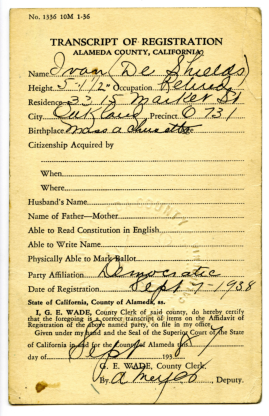 No. 1336 10M 1-36
TRANSCRIPT OF REGISTRATION
ALAMEDA COUNTY, CALIFORNIA
Name Ivan (De Shields)
Height 5-1 1/2" Occupation Retired
Residence 3315 Market St
City Oakland Precinct O 731
Birthplace Massachusetts
Citizenship Acquired by
When
Where
Husband's Name
Name of Father—Mother
Able to Read Constitution in English
Able to Write Name
Physically Able to Mark Ballot
Party Affiliation Democratic
Date of Registration Sept 7-1938
State of California, County of Alameda, ss.
I, G. E. WADE, County Clerk of said county, do hereby certify
that the foregoing is a correct transcript of items on the Affidavit of
Registration of the above named party, on file in my office.
Given under my hand and the Seal of the Superior Court of the State
of California in and for the County of Alameda, this
day of Sept 193
G. E. WADE, County Clerk.
By Deputy.